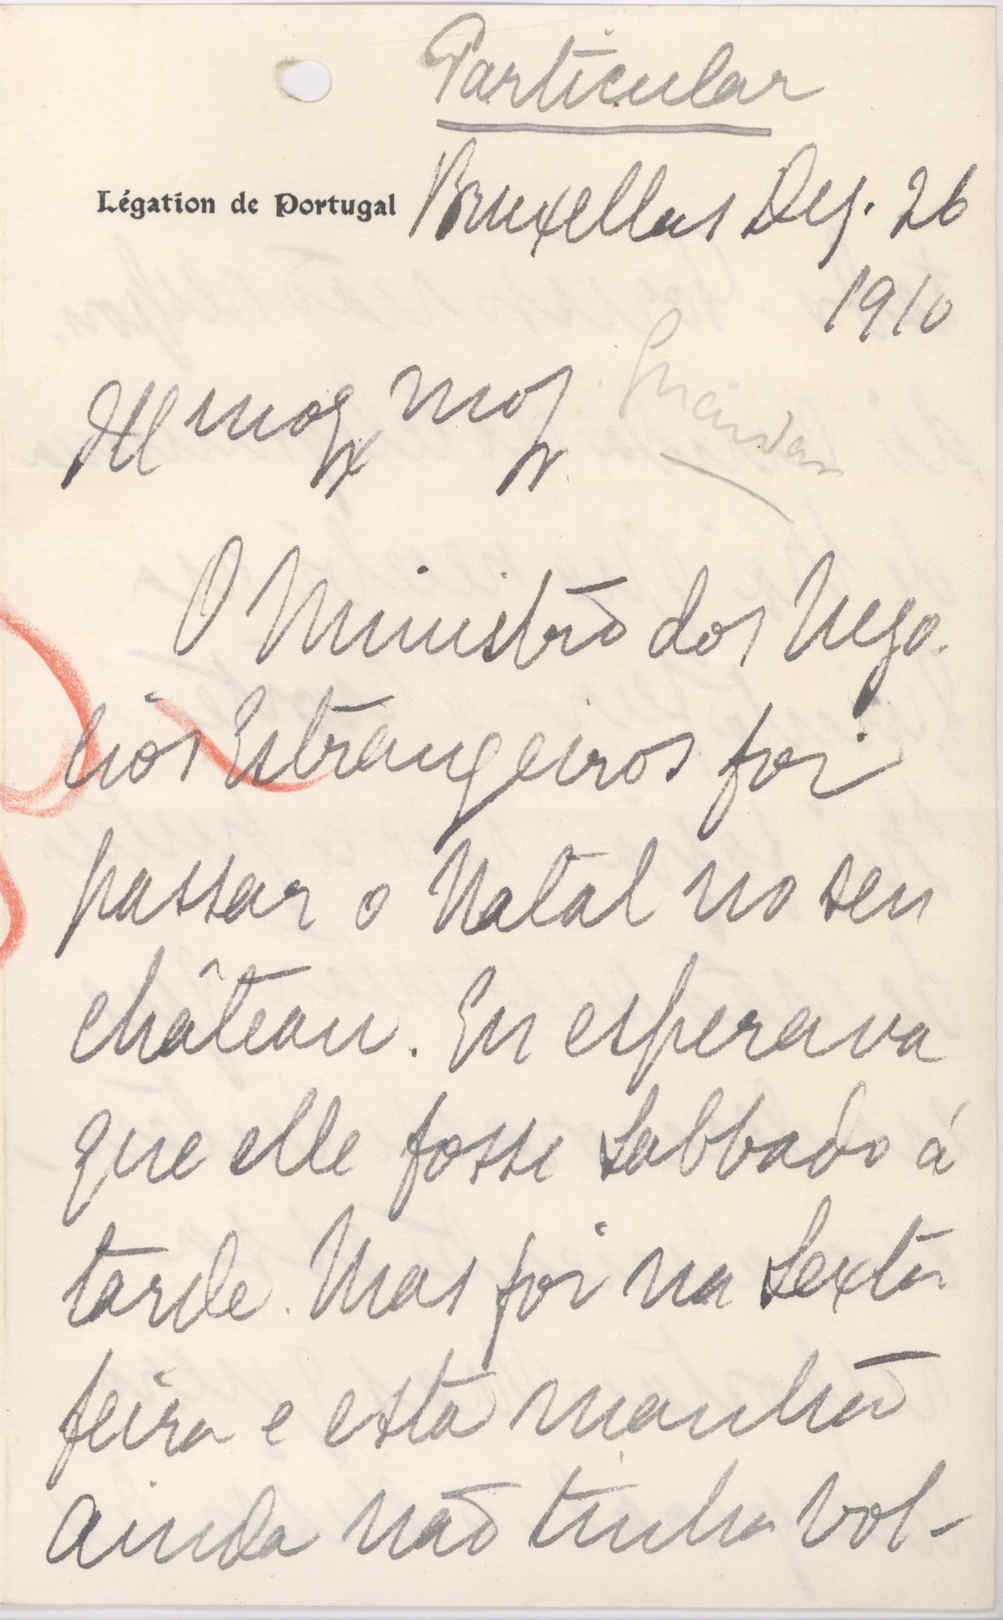 Particular
Légation de Portugal Bruxellas Dez. 26
1910
Illmo Exmo Sr.
Guardar
O Ministro dos Nego-
cios Estrangeiros foi
passar o Natal no seu
château. Eu esperava
que elle fosse sabbado á
tarde. Mas foi na sexta
feira e esta manhã
ainda não tinha vol-